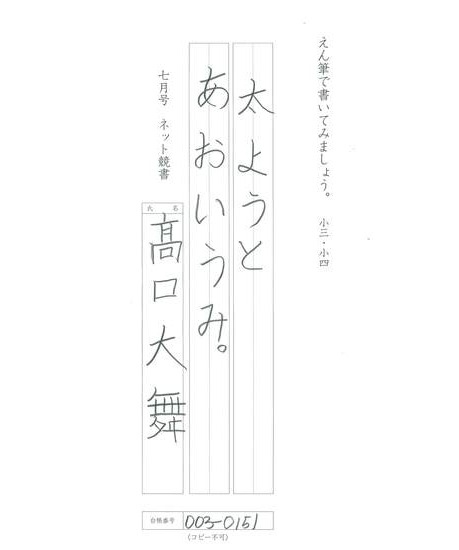 えん筆で書いてみましょう。 小三・小四
太ようと
あおいうみ。
七月号 ネット競書
氏名
髙口大舞
台帳番号 003-0151
(コピー不可)